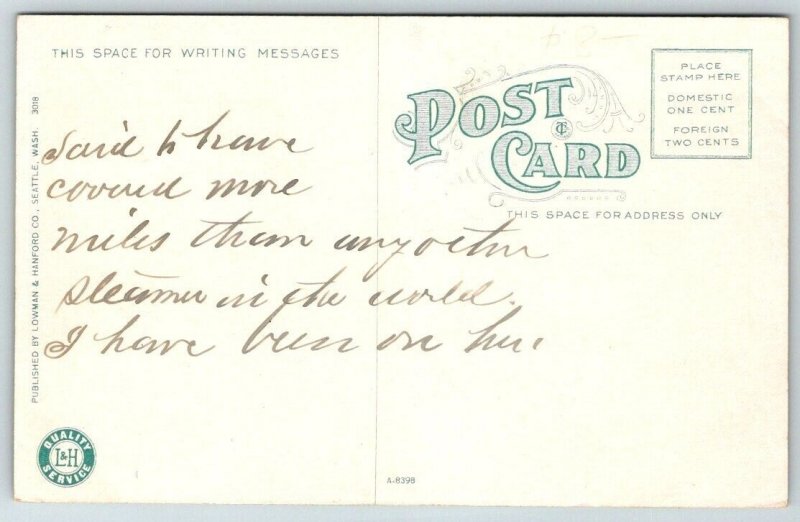 THIS SPACE FOR WRITING MESSAGES
POST CARD
PLACE
STAMP HERE
DOMESTIC
ONE CENT
FOREIGN
TWO CENTS
THIS SPACE FOR ADDRESS ONLY
Said to have
covered more
miles than any other
steamer in the world.
I have been on her
PUBLISHED BY LOWMAN & HANFORD CO., SEATTLE, WASH. 3018
QUALITY
L&H
SERVICE
A-8398